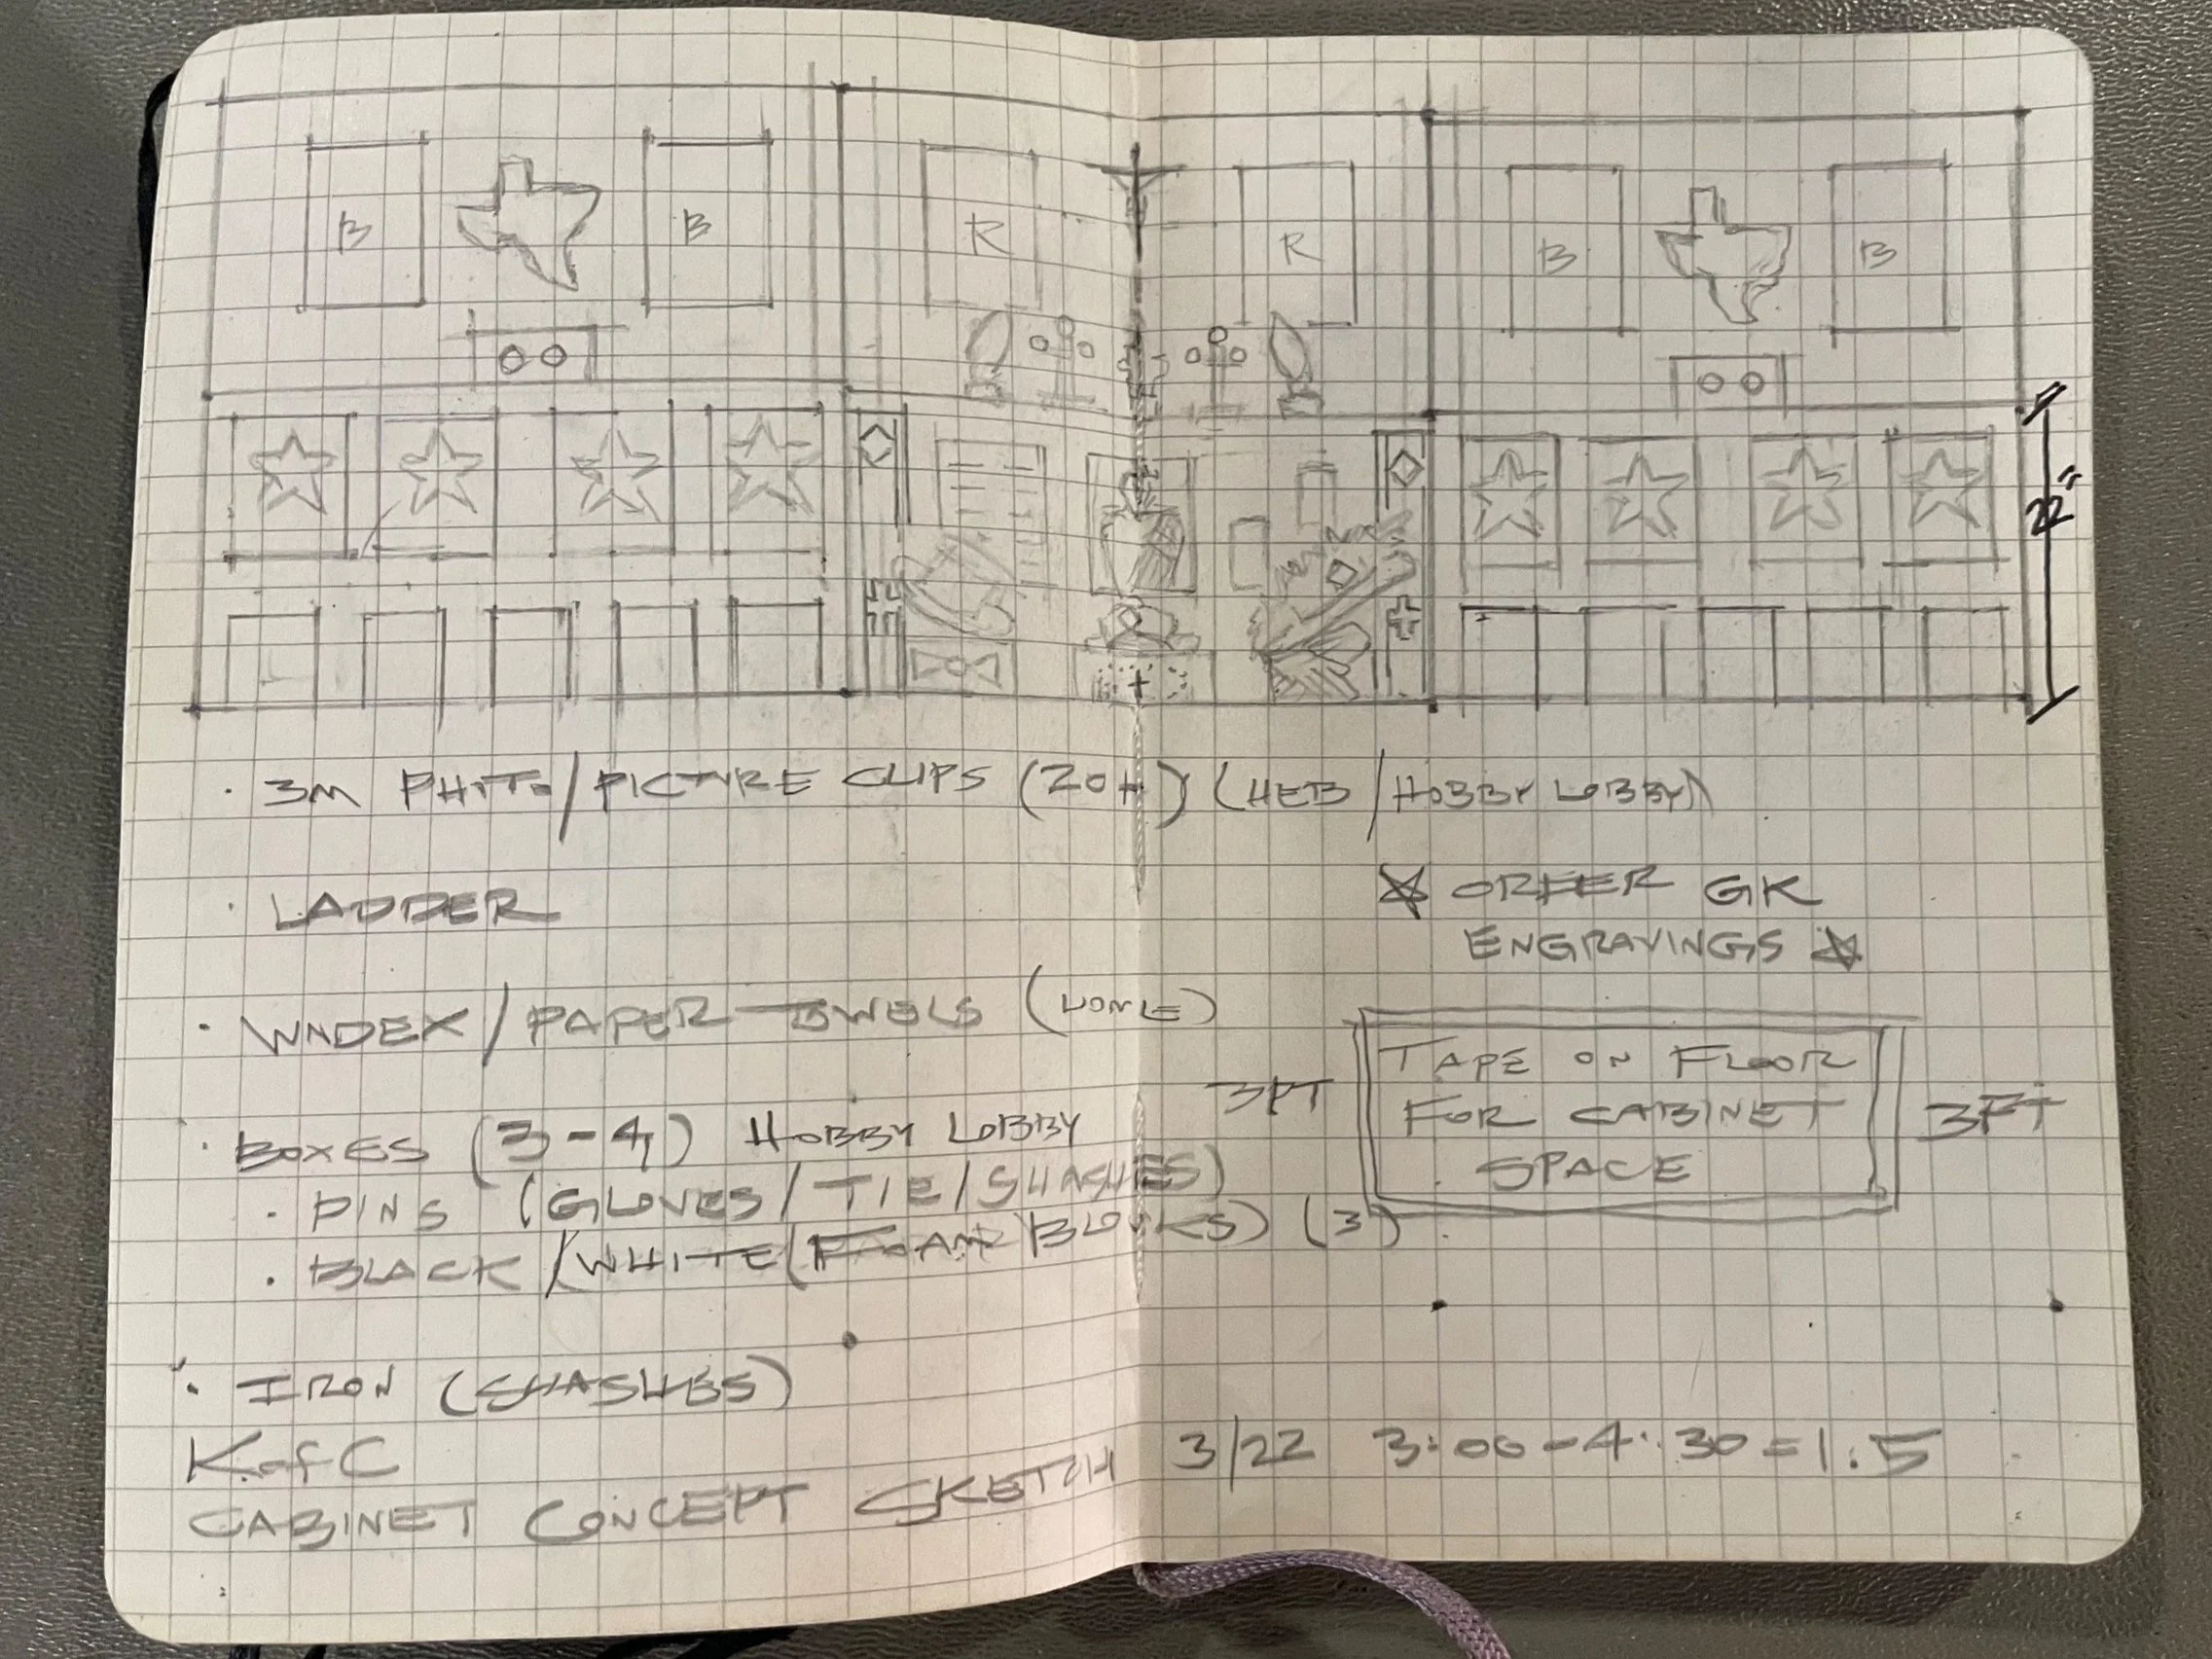 B B R R B B
22"
· 3M PHOTO/PICTURE CLIPS (20+) (HEB/HOBBY LOBBY)
· LADDER
☆ ORDER GK
ENGRAVINGS ☆
· WNDEX/PAPER TOWELS
3FT TAPE ON FLOOR 3FT
FOR CABINET
SPACE
· BOXES (3-4) HOBBY LOBBY
· PINS (GLOVES/TIE/SHASHES)
· BLACK/WHITE (FOAM BLOCKS) (3)
· IRON (SHASHES)
K of C
CABINET CONCEPT SKETCH 3/22 3:00-4:30=1.5